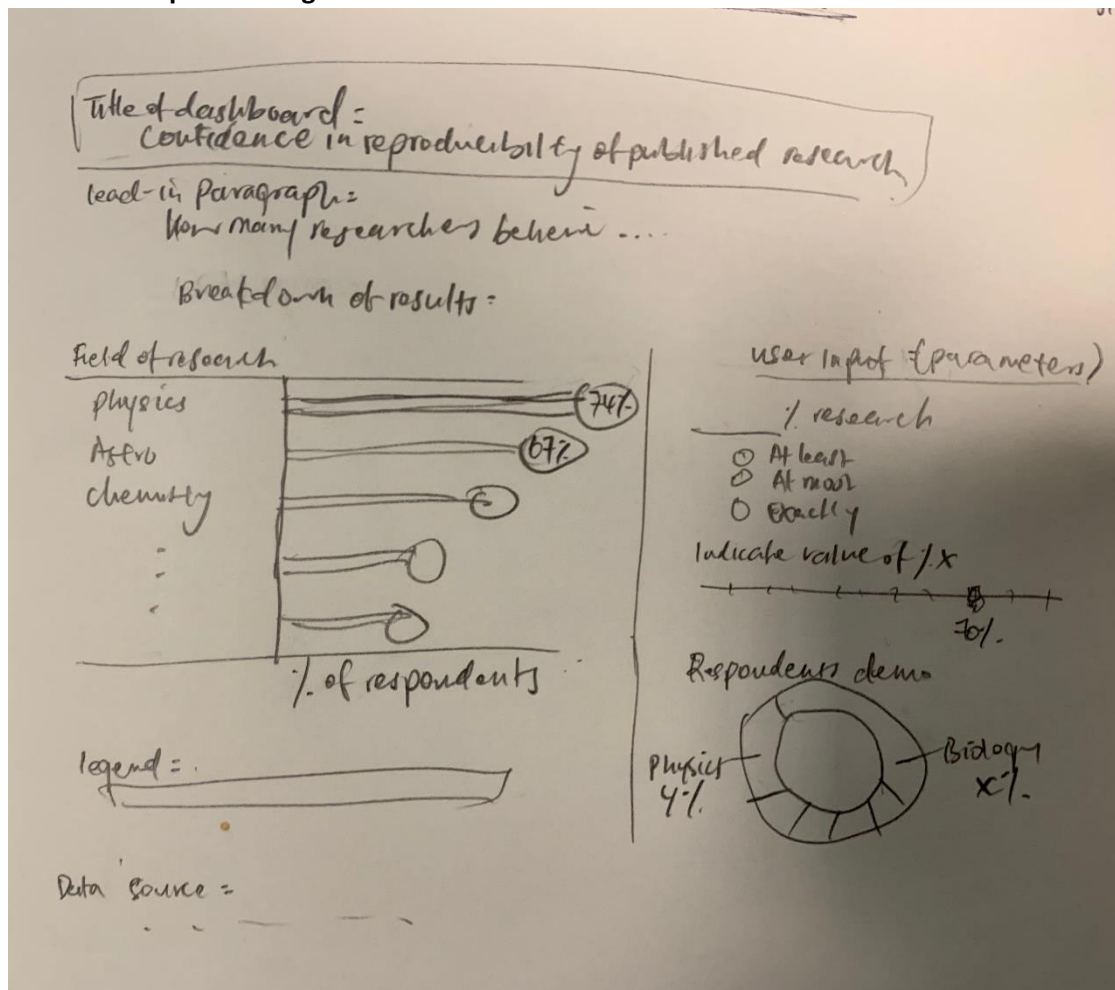 Title of dashboard =
Confidence in reproducibilty of published research
lead-in paragraph =
How many researchers believe ....
Breakdown of results =
Field of research
physics
74%
Astro
67%
chemistry
% of respondents
legend =
Data source =
user input (parameters)
% research
At least
At most
Exactly
Indicate value of % x
70%.
Respondents demo
Physics
Y%.
Biology
X%.